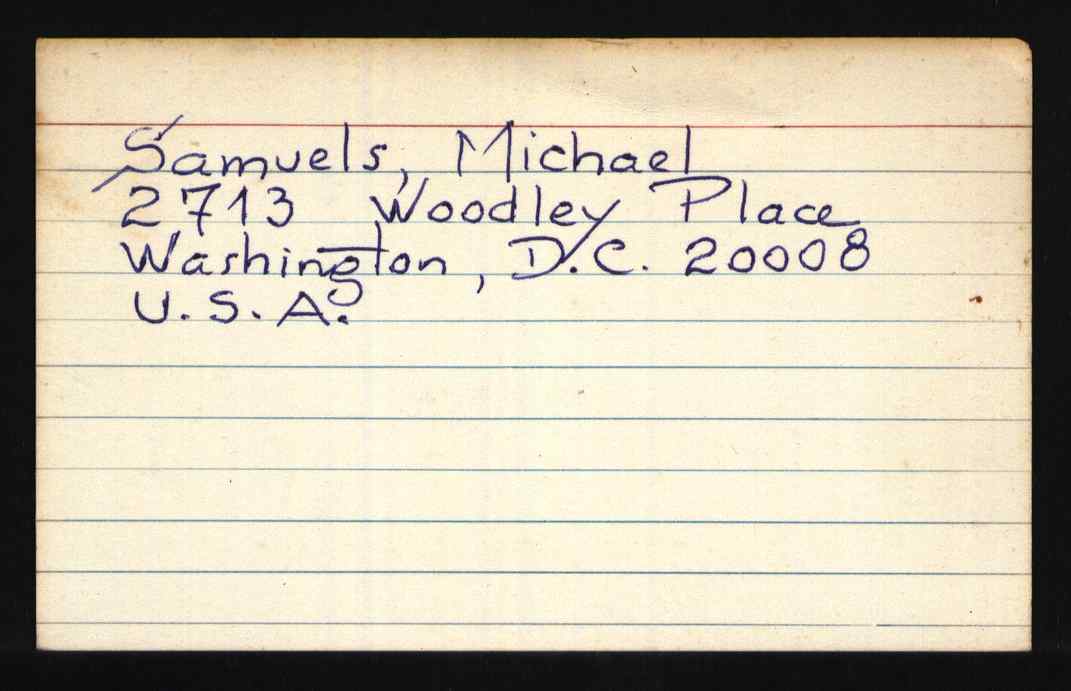 Samuels, Michael
2713 Woodley Place
Washington, D.C. 20008
U.S.A.